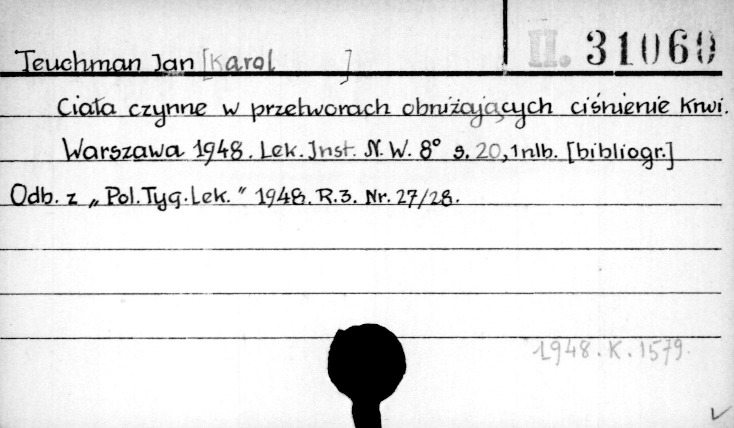 II. 31060
Teuchman Jan [Karol ]
Ciała czynne w przetworach obniżających ciśnienie krwi.
Warszawa 1948. Lek. Inst. N. W. 8° s. 20, 1 nlb. [bibliogr.]
Odb. z „Pol. Tyg. Lek.” 1948. R. 3. Nr. 27/28.
1948. K. 1579.